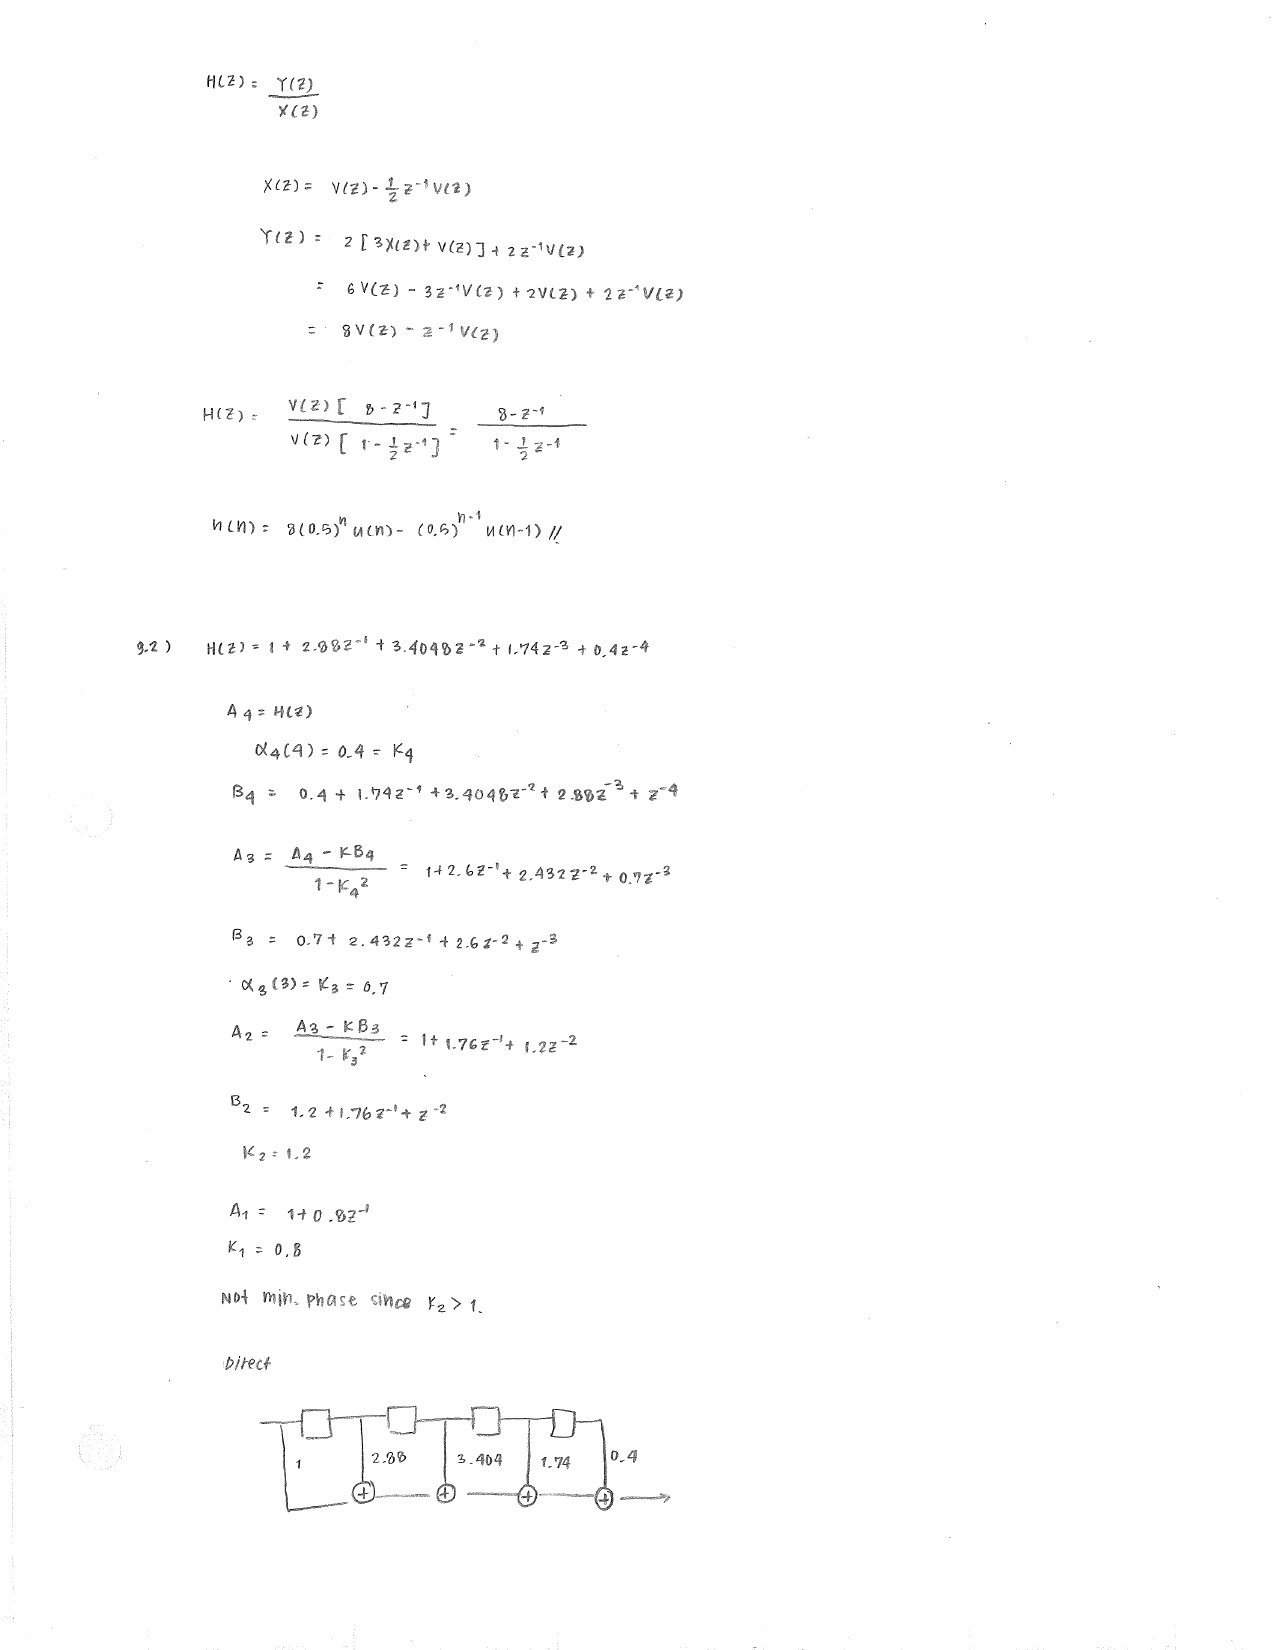 H(z) = Y(z) / X(z)
X(z) = V(z) - 1/2 z^-1 V(z)
Y(z) = 2 [3X(z) + V(z)] + 2 z^-1 V(z)
= 6V(z) - 3z^-1 V(z) + 2V(z) + 2z^-1 V(z)
= 8V(z) - z^-1 V(z)
H(z) = V(z) [8 - z^-1] / V(z) [1 - 1/2 z^-1] = 8 - z^-1 / 1 - 1/2 z^-1
h(n) = 8(0.5)^n u(n) - (0.5)^n-1 u(n-1) //
9.2) H(z) = 1 + 2.88z^-1 + 3.4048z^-2 + 1.74z^-3 + 0.4z^-4
A4 = H(z)
α4(4) = 0.4 = K4
B4 = 0.4 + 1.74z^-1 + 3.4048z^-2 + 2.88z^-3 + z^-4
A3 = A4 - KB4 / 1 - K4^2 = 1 + 2.6z^-1 + 2.432z^-2 + 0.7z^-3
B3 = 0.7 + 2.432z^-1 + 2.6z^-2 + z^-3
α3(3) = K3 = 0.7
A2 = A3 - KB3 / 1 - K3^2 = 1 + 1.76z^-1 + 1.2z^-2
B2 = 1.2 + 1.76z^-1 + z^-2
K2 = 1.2
A1 = 1 + 0.8z^-1
K1 = 0.8
Not min. phase since K2 > 1.
Direct
1 2.88 3.404 1.74 0.4
+ + + +